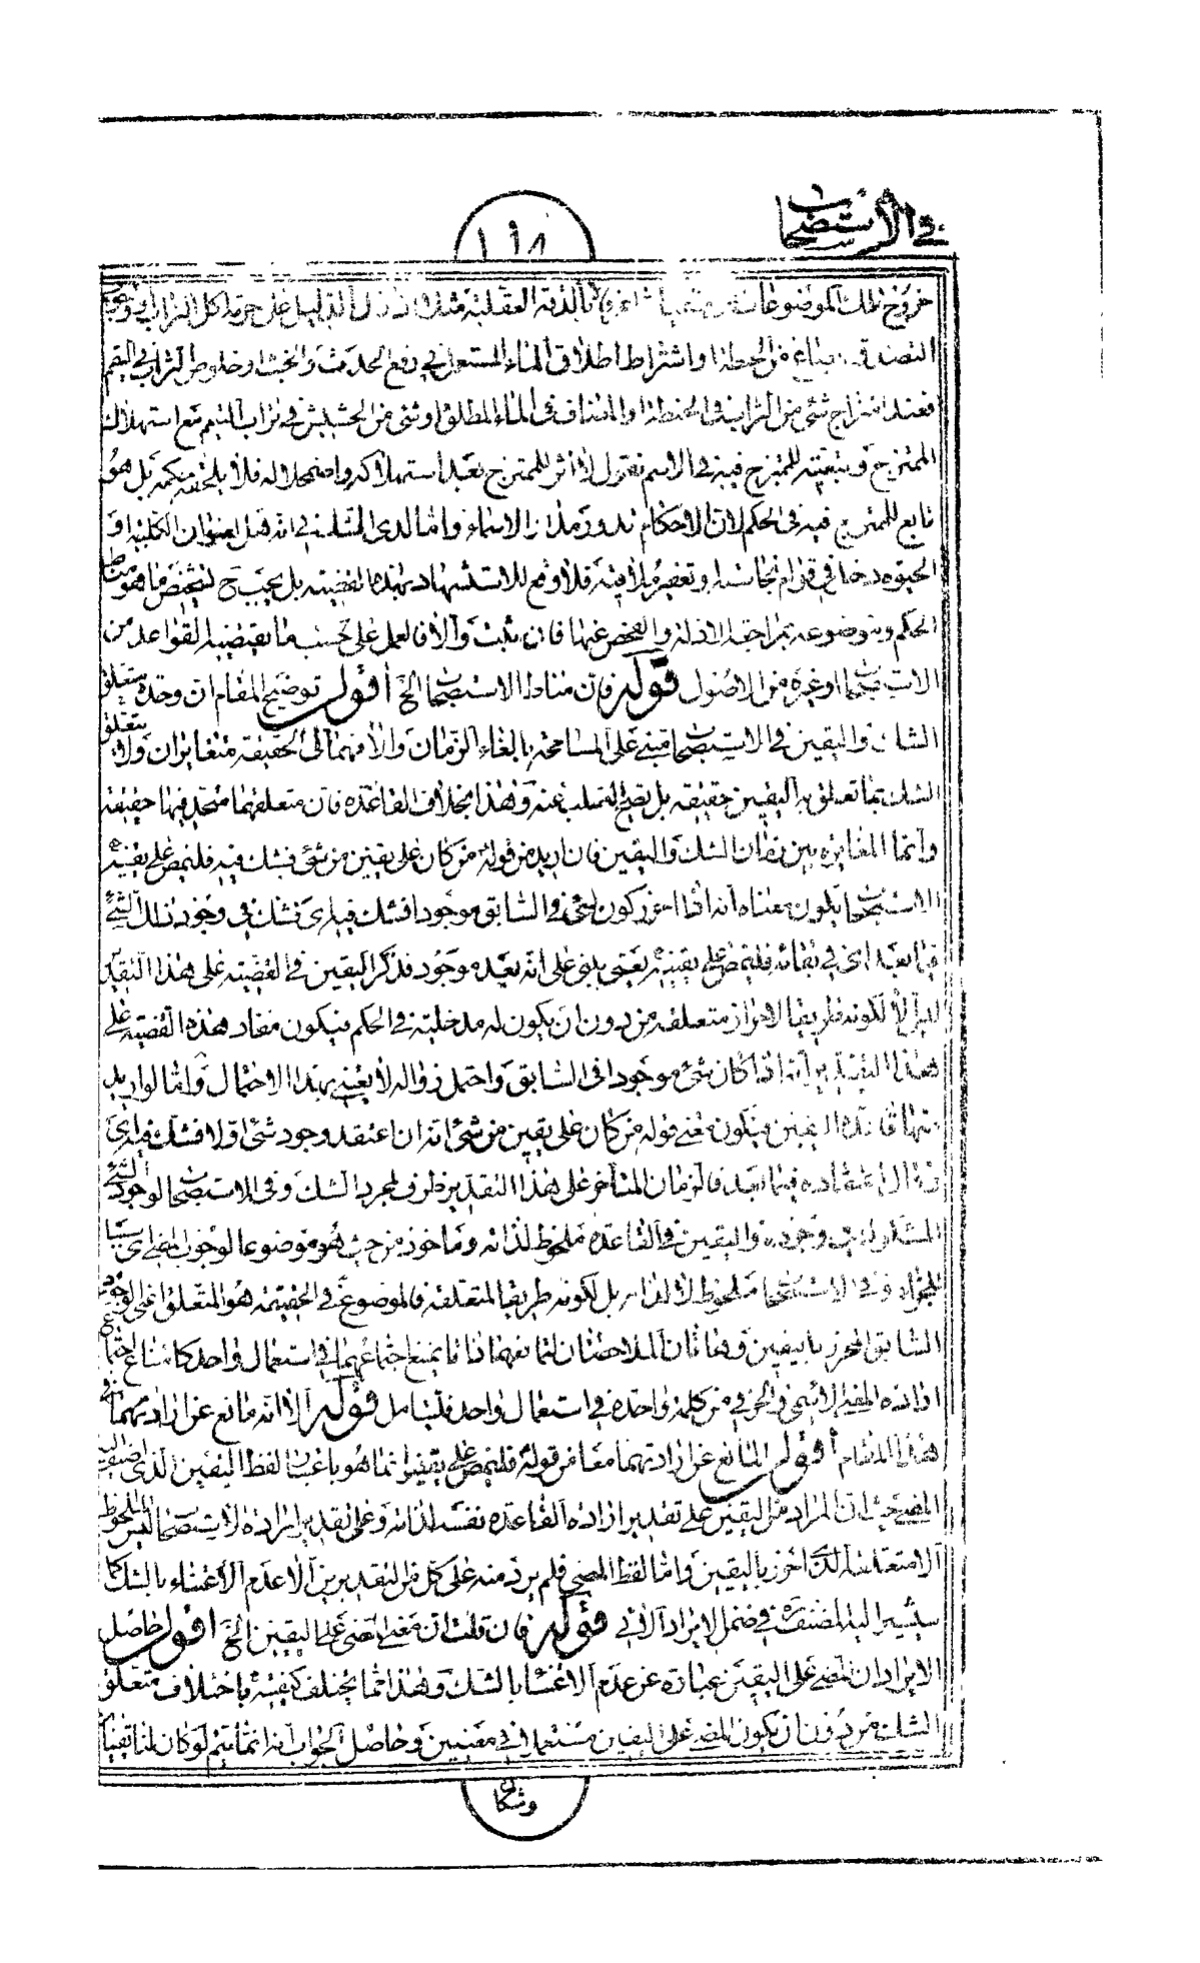 في الاستصحاب
١٩٨
خروج تلك الموضوعات عن بالدقة العقلية مثلا اذا دل الدليل على حرمة اكل التراب او وجوب
التصدق بصاع من الحنطة او اشتراط اطلاق الماء المستعمل في رفع الحدث والخبث او خلوص التراب في التيمم
فعند امتزاج شئ من التراب في الحنطة او المضاف في الماء المطلق او شئ من الحشيش في تراب التيمم مع استهلاك
الممتزج وتبعيته للممتزج فيه في الاسم نقول لا اثر للممتزج بعد استهلاكه واضمحلاله فلا يلحقه حكمه بل هو
تابع للممتزج فيه في الحكم لان الاحكام تدور مدار الاسماء واما لدى الشك في انه هل لعنوان الكلبية او
الحيوة دخل في قوام نجاسته او تنجيس ملاقيه فلا وقع للاستشهاد بهذه القضية بل يجب ح تشخيص ما هو مناط
الحكم وموضوعه بمراجعة الادلة والفحص عنها فان ثبت والا فالعمل على حسب ما يقتضيه القواعد من
الاستصحاب او غيره من الاصول قوله فان مناط الاستصحاب الخ اقول توضيح المقام ان وحدة متعلق
الشك واليقين في الاستصحاب مبنية على المسامحة بالغاء الزمان والا فهما في الحقيقة متغايران ولا يتعلق
الشك بما تعلق به اليقين حقيقة بل يصح السلب عنه وهذا بخلاف القاعدة فان متعلقهما متحد فيها حقيقة
وانما المغايرة بين زمان الشك واليقين فان اريد من قوله من كان على يقين من شئ فشك فيه فليمض على يقينه
الاستصحاب يكون معناه انه اذا احرز كون شئ في السابق موجودا فشك فيه اى فشك في وجود ذلك الشئ
فيما بعد اى في بقائه فليمض على يقينه يعنى يبنى على انه بعد موجود فذكر اليقين في القضية على هذا التقدير
ليس الا لكونه طريقا لاحراز متعلقه من دون ان يكون له مدخلية في الحكم فيكون مفاد هذه القضية على
هذا التقدير انه اذا كان شئ موجودا في السابق واحتمل زواله لا يعتنى بهذا الاحتمال واما لو اريد
منها قاعدة اليقين فيكون معنى قوله من كان على يقين من شئ انه ان اعتقد وجود شئ اولا فشك فيه اى
زال اعتقاده فيما بعد فالزمان المتأخر على هذا التقدير ظرف لمجرد الشك وفي الاستصحاب لوجود الشئ
المشكوك في وجوده واليقين في القاعدة ملحوظ لذاته وماخوذ من حيث هو موضوعا لوجوب المضى اى سببا
للجواز وفي الاستصحاب ملحوظ لا لذاته بل لكونه طريقا لمتعلقه فالموضوع في الحقيقة هو المتعلق اعنى الوجود
السابق المحرز باليقين وهاتان الملاحظتان لتنافيهما ذاتا يمتنع اجتماعهما في استعمال واحد كامتناع اجتماع
ارادة المعنى الاسمى والحرفي من كلمة واحدة في استعمال واحد فليتامل قوله الا انه مانع عن ارادتهما في
هذا المقام اقول المانع عن ارادتهما معا من قوله فليمض على يقينه انما هو باعتبار لفظ اليقين الذى اضيف اليه
المضى حيث ان المراد من اليقين على تقدير ارادة القاعدة نفسه لذاته وعلى تقدير ارادة الاستصحاب ليس الملحوظ
الا متعلقه الذى احرز باليقين واما لفظ المضى فلم يرد منه على كل من التقديرين الا عدم الاعتناء بالشك كما
سيشير اليه المصنف ره في ضمن الايراد الاتى قوله فان قلت ان معنى المضى على اليقين الخ اقول حاصل
الايراد ان المضى على اليقين عبارة عن عدم الاعتناء بالشك وهذا مما يختلف كيفيته باختلاف متعلق
الشك من دون ان يكون المضى على اليقين مستعملا في معنيين وحاصل الجواب انه انما يتم لو كان لنا يقينان
وشكان